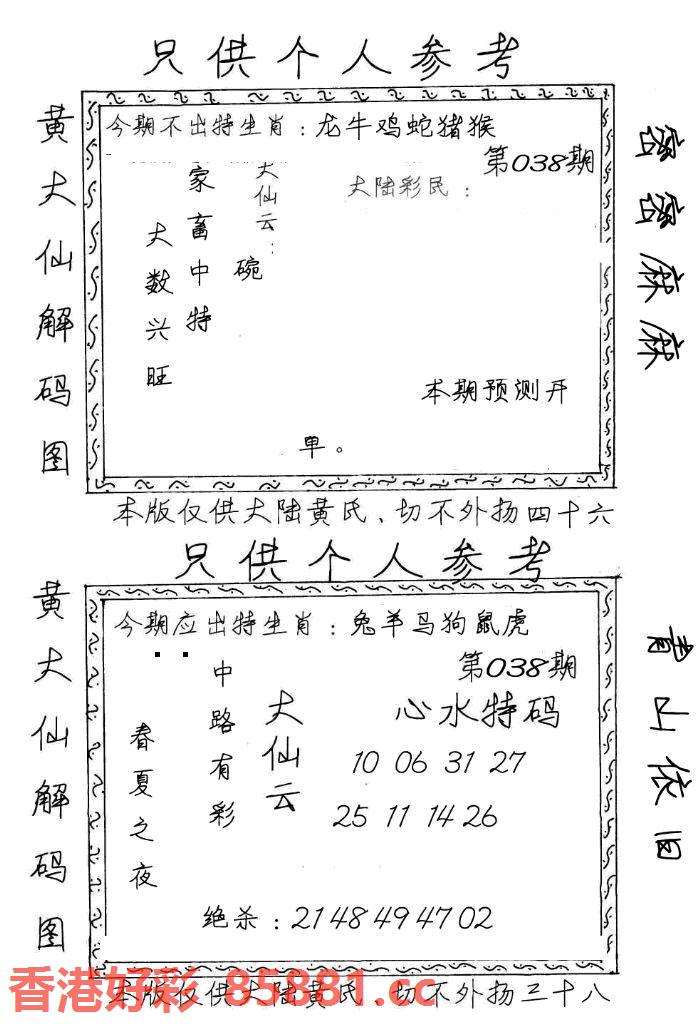 只供个人参考
黄大仙解码图
今期不出特生肖：龙牛鸡蛇猪猴
第038期
大陆彩民：
大仙云：
碗
家畜中特
大数兴旺
本期预测开
单。
密密麻麻
本版仅供大陆黄氏、切不外扬四十六
只供个人参考
黄大仙解码图
今期应出特生肖：兔羊马狗鼠虎
第038期
心水特码
10 06 31 27
25 11 14 26
大仙云
中路有彩
春夏之夜
绝杀：21 48 49 47 02
青山依旧
本版仅供大陆黄氏、切不外扬三十八
香港好彩 85881.cc